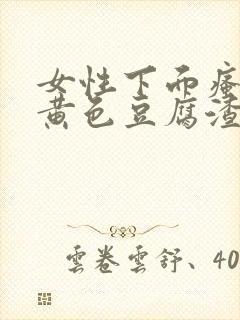 女性下面瘙
黄色豆腐渣
雲卷雲舒、40